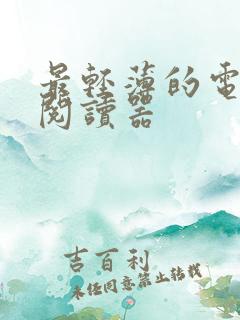 最輕薄的電
閱讀器
吉百利
未经同意禁止转载